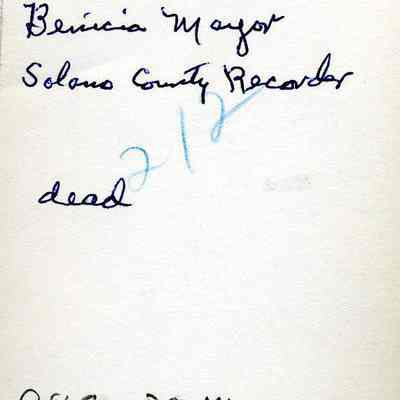 Benicia Mayor
Solano County Recorder
212
dead